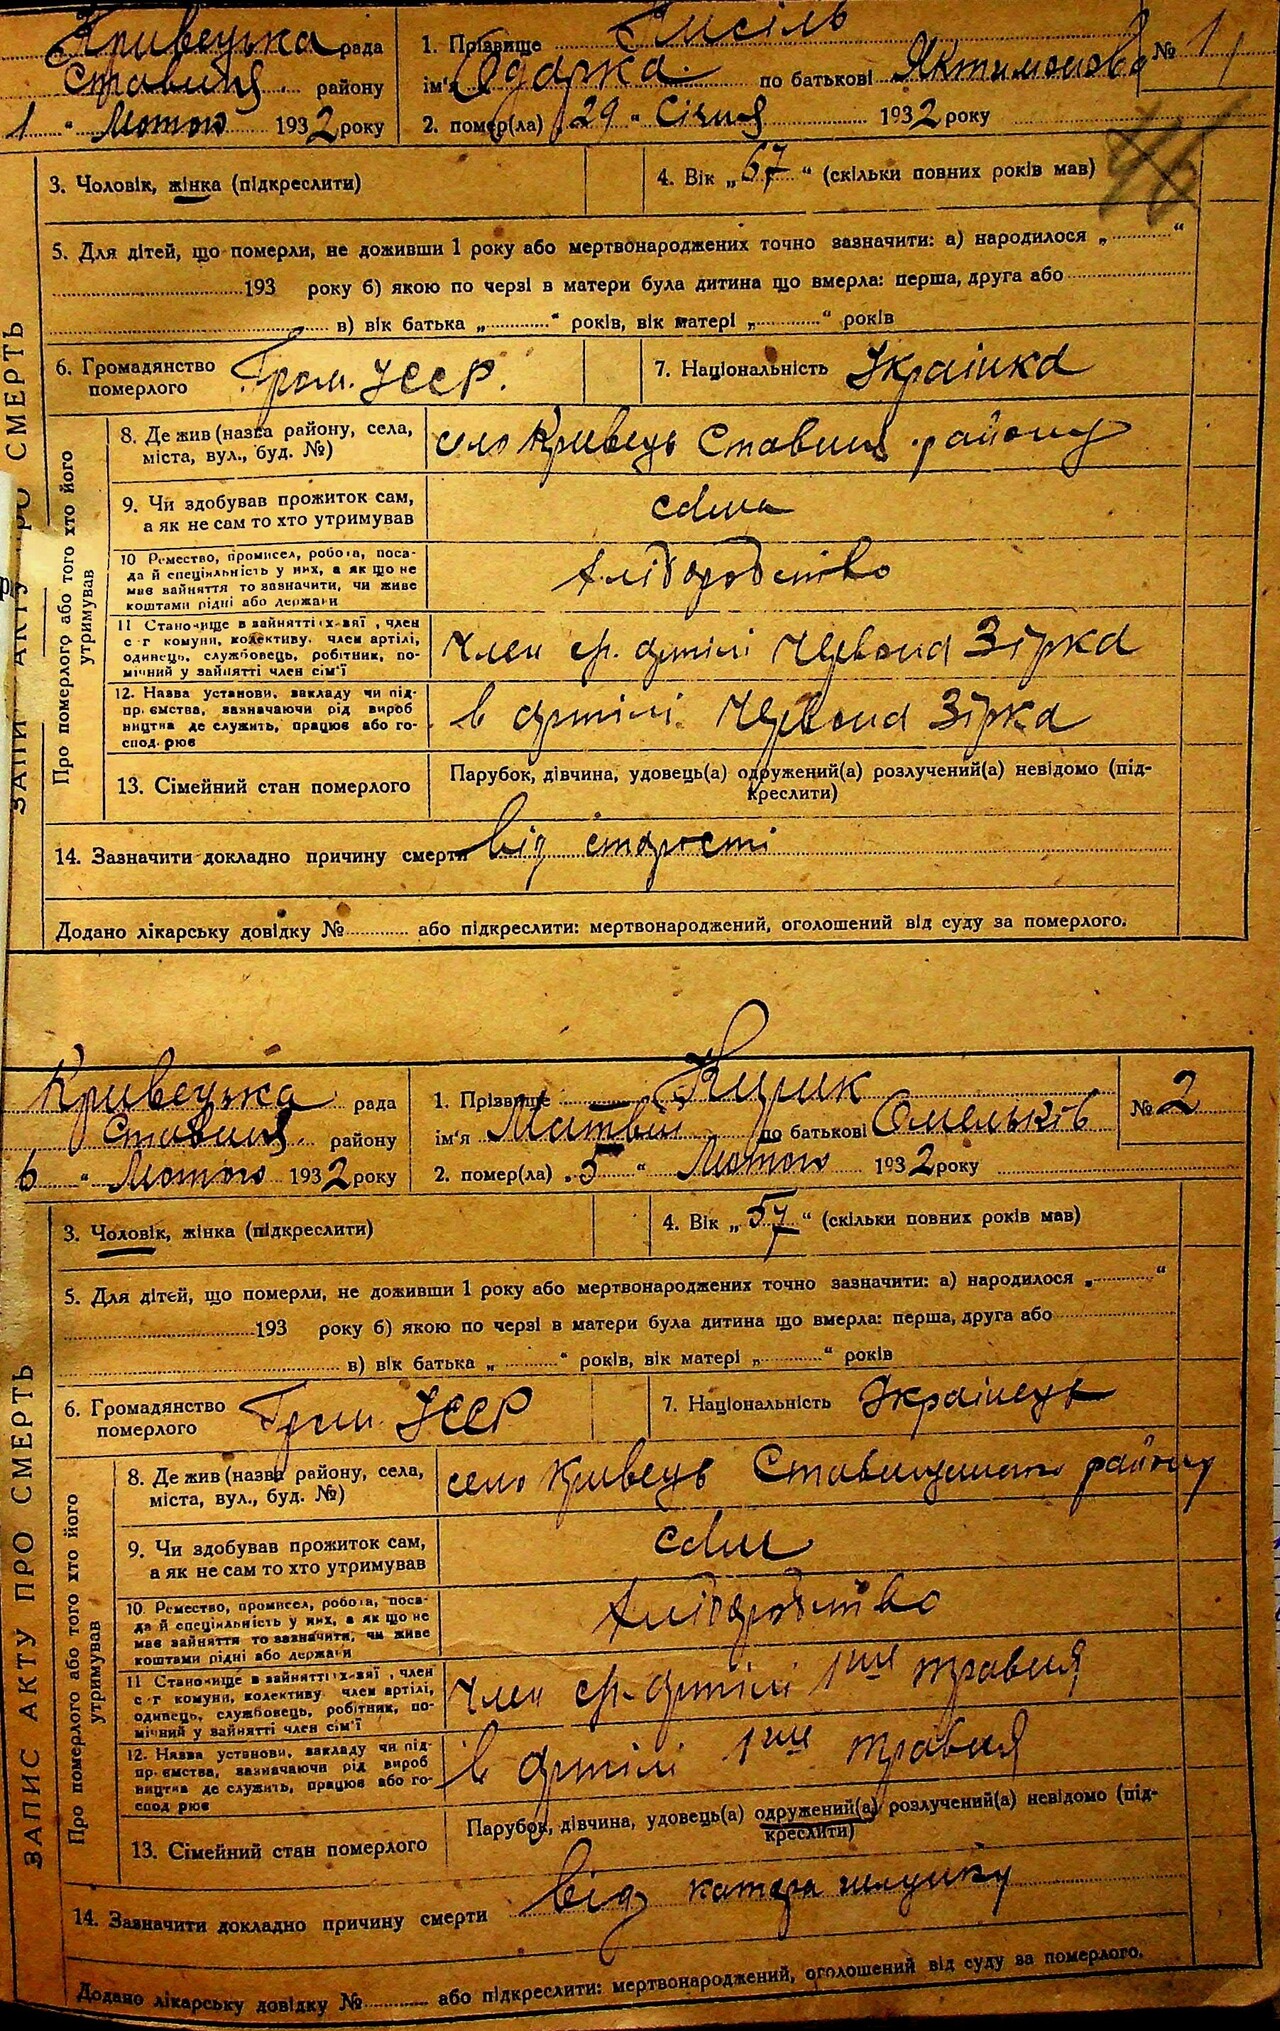 Кривецька рада
Ставищ. району
1 " Лютого 1932 року
1. Прізвище Кисіль
ім'я Одарка по батькові № 1
2. помер(ла) 29 " Січня 1932 року
46
3. Чоловік, жінка (підкреслити)
4. Вік „ 67 “ (скільки повних років мав)
5. Для дітей, що померли, не доживши 1 року або мертвонароджених точно зазначити: а) народилося „ “
193 року б) якою по черзі в матери була дитина що вмерла: перша, друга або
в) вік батька „ “ років, вік матері „ “ років
6. Громадянство
померлого
Гром. УССР.
7. Національність Українка
ЗАПИС АКТУ ПРО СМЕРТЬ
Про померлого або того хто його
утримував
8. Де жив (назва району, села,
міста, вул., буд. №)
село Кривець Ставищ району
9. Чи здобував прожиток сам,
а як не сам то хто утримував
сама
10 Ремество, промисел, робота, поса-
да й спеціяльність у них, а як що не
має зайняття то зазначити, чи живе
коштами рідні або держави
хліборобство
11 Становище в зайнятті член
с-г комуни, колективу, член артілі,
одинець, службовець, робітник, по-
мічний у зайнятті член сім'ї
член ср. артілі Червона Зірка
12. Назва установи, закладу чи під-
пр ємства, зазначаючи рід вироб
ництва де служить, працює або го-
спод. рює
в артілі Червона Зірка
13. Сімейний стан померлого
Парубок, дівчина, удовець(а) одружений(а) розлучений(а) невідомо (під-
креслити)
14. Зазначити докладно причину смерти від старості
Додано лікарську довідку № або підкреслити: мертвонароджений, оголошений від суду за померлого.
Кривецька рада
Ставищ. району
6 " Лютого 1932 року
1. Прізвище Кирик
ім'я Матвій по батькові Омельков № 2
2. помер(ла) 5 " Лютого 1932 року
3. Чоловік, жінка (підкреслити)
4. Вік „ 57 “ (скільки повних років мав)
5. Для дітей, що померли, не доживши 1 року або мертвонароджених точно зазначити: а) народилося „ “
193 року б) якою по черзі в матери була дитина що вмерла: перша, друга або
в) вік батька „ “ років, вік матері „ “ років
6. Громадянство
померлого
Гром. УССР
7. Національність Українець
ЗАПИС АКТУ ПРО СМЕРТЬ
Про померлого або того хто його
утримував
8. Де жив (назва району, села,
міста, вул., буд. №)
село Кривець Ставищанського району
9. Чи здобував прожиток сам,
а як не сам то хто утримував
сам
10. Ремество, промисел, робота, поса-
да й спеціяльність у них, а як що не
має зайняття то зазначити, чи живе
коштами рідні або держави
хліборобство
11 Становище в зайнятті член
с-г комуни, колективу член артілі,
одинець, службовець, робітник, по-
мічний у зайнятті член сім'ї
член ср. артілі 1ше травня
12. Назва установи, закладу чи під-
пр ємства, зазначаючи рід вироб
ництва де служить, працює або го-
спод рює
в артілі 1ше травня
13. Сімейний стан померлого
Парубок, дівчина, удовець(а) одружений(а) розлучений(а) невідомо (під-
креслити)
14. Зазначити докладно причину смерти від катара шлунку
Додано лікарську довідку № або підкреслити: мертвонароджений, оголошений від суду за померлого.